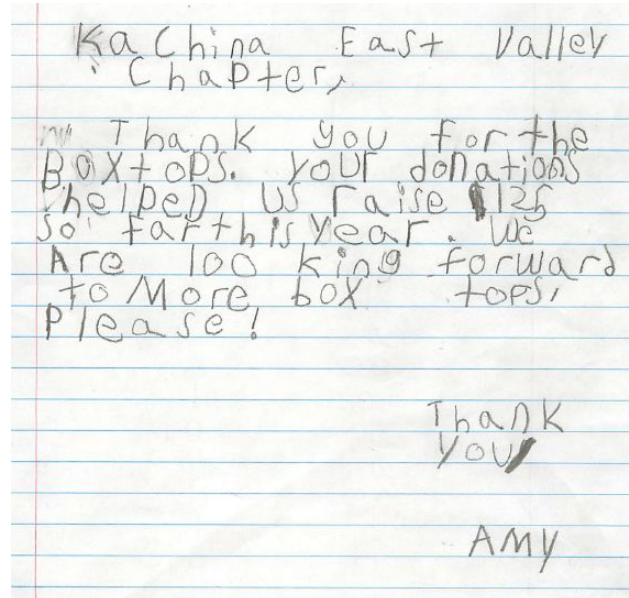 KaChina East Valley
Chapter,
Thank you for the
Boxtops. your donations
helped us raise $125
so farthisyear. We
Are looking forward
to More box tops,
Please!
Thank
you
AMY